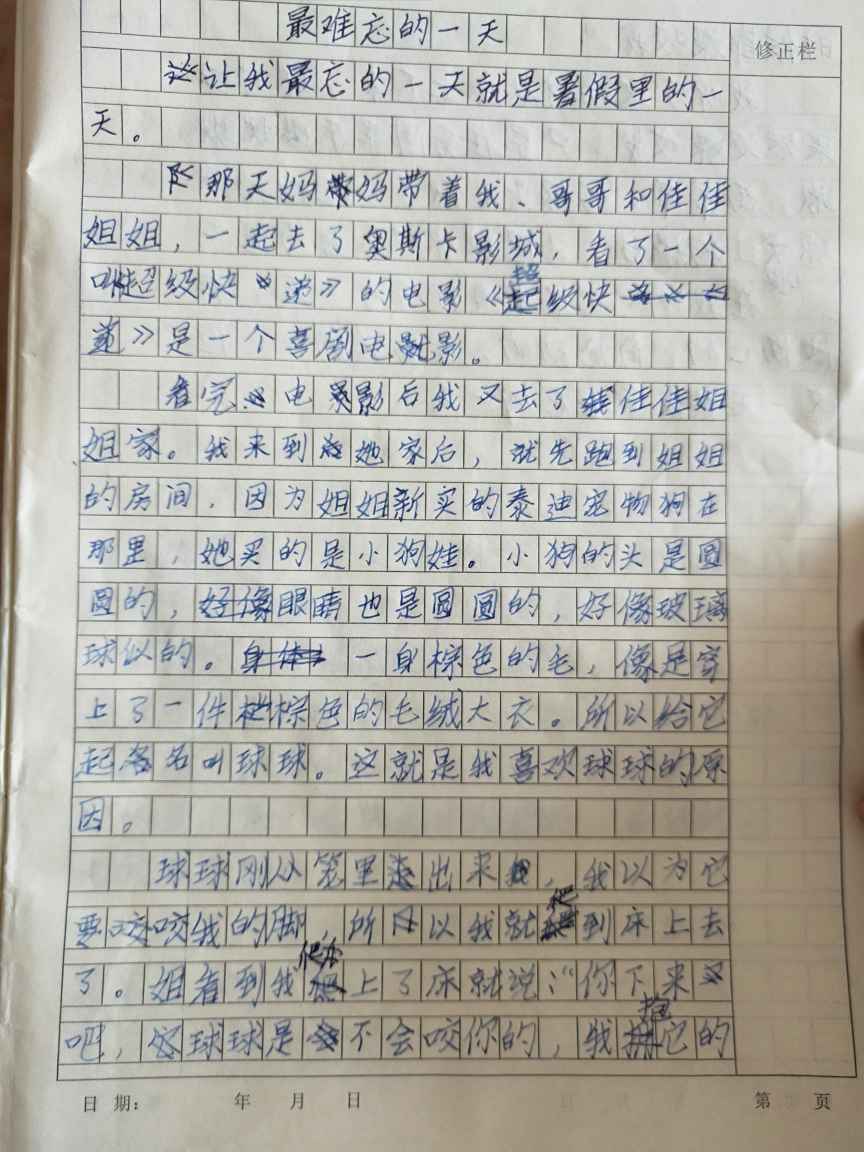 最难忘的一天
修正栏
让我最忘的一天就是暑假里的一
天。
那天妈妈带着我、哥哥和佳佳
姐姐,一起去了奥斯卡影城,看了一个
叫超级快递》的电影《超级快
递》是一个喜剧电影。
看完电影后我又去了佳佳姐
姐家。我来到她家后,就先跑到姐姐
的房间,因为姐姐新买的泰迪宠物狗在
那里,她买的是小狗娃。小狗的头是圆
圆的,眼睛也是圆圆的,好像玻璃
球似的。一身棕色的毛,像是穿
上了一件棕色的毛绒大衣。所以给它
起名叫球球。这就是我喜欢球球的原
因。
球球刚从笼里出来,我以为它
要咬我的脚,所以我就爬到床上去
了。姐看到我爬上了床就说:“你下来
吧,球球是不会咬你的,我抱它的
日期: 年 月 日 第 页